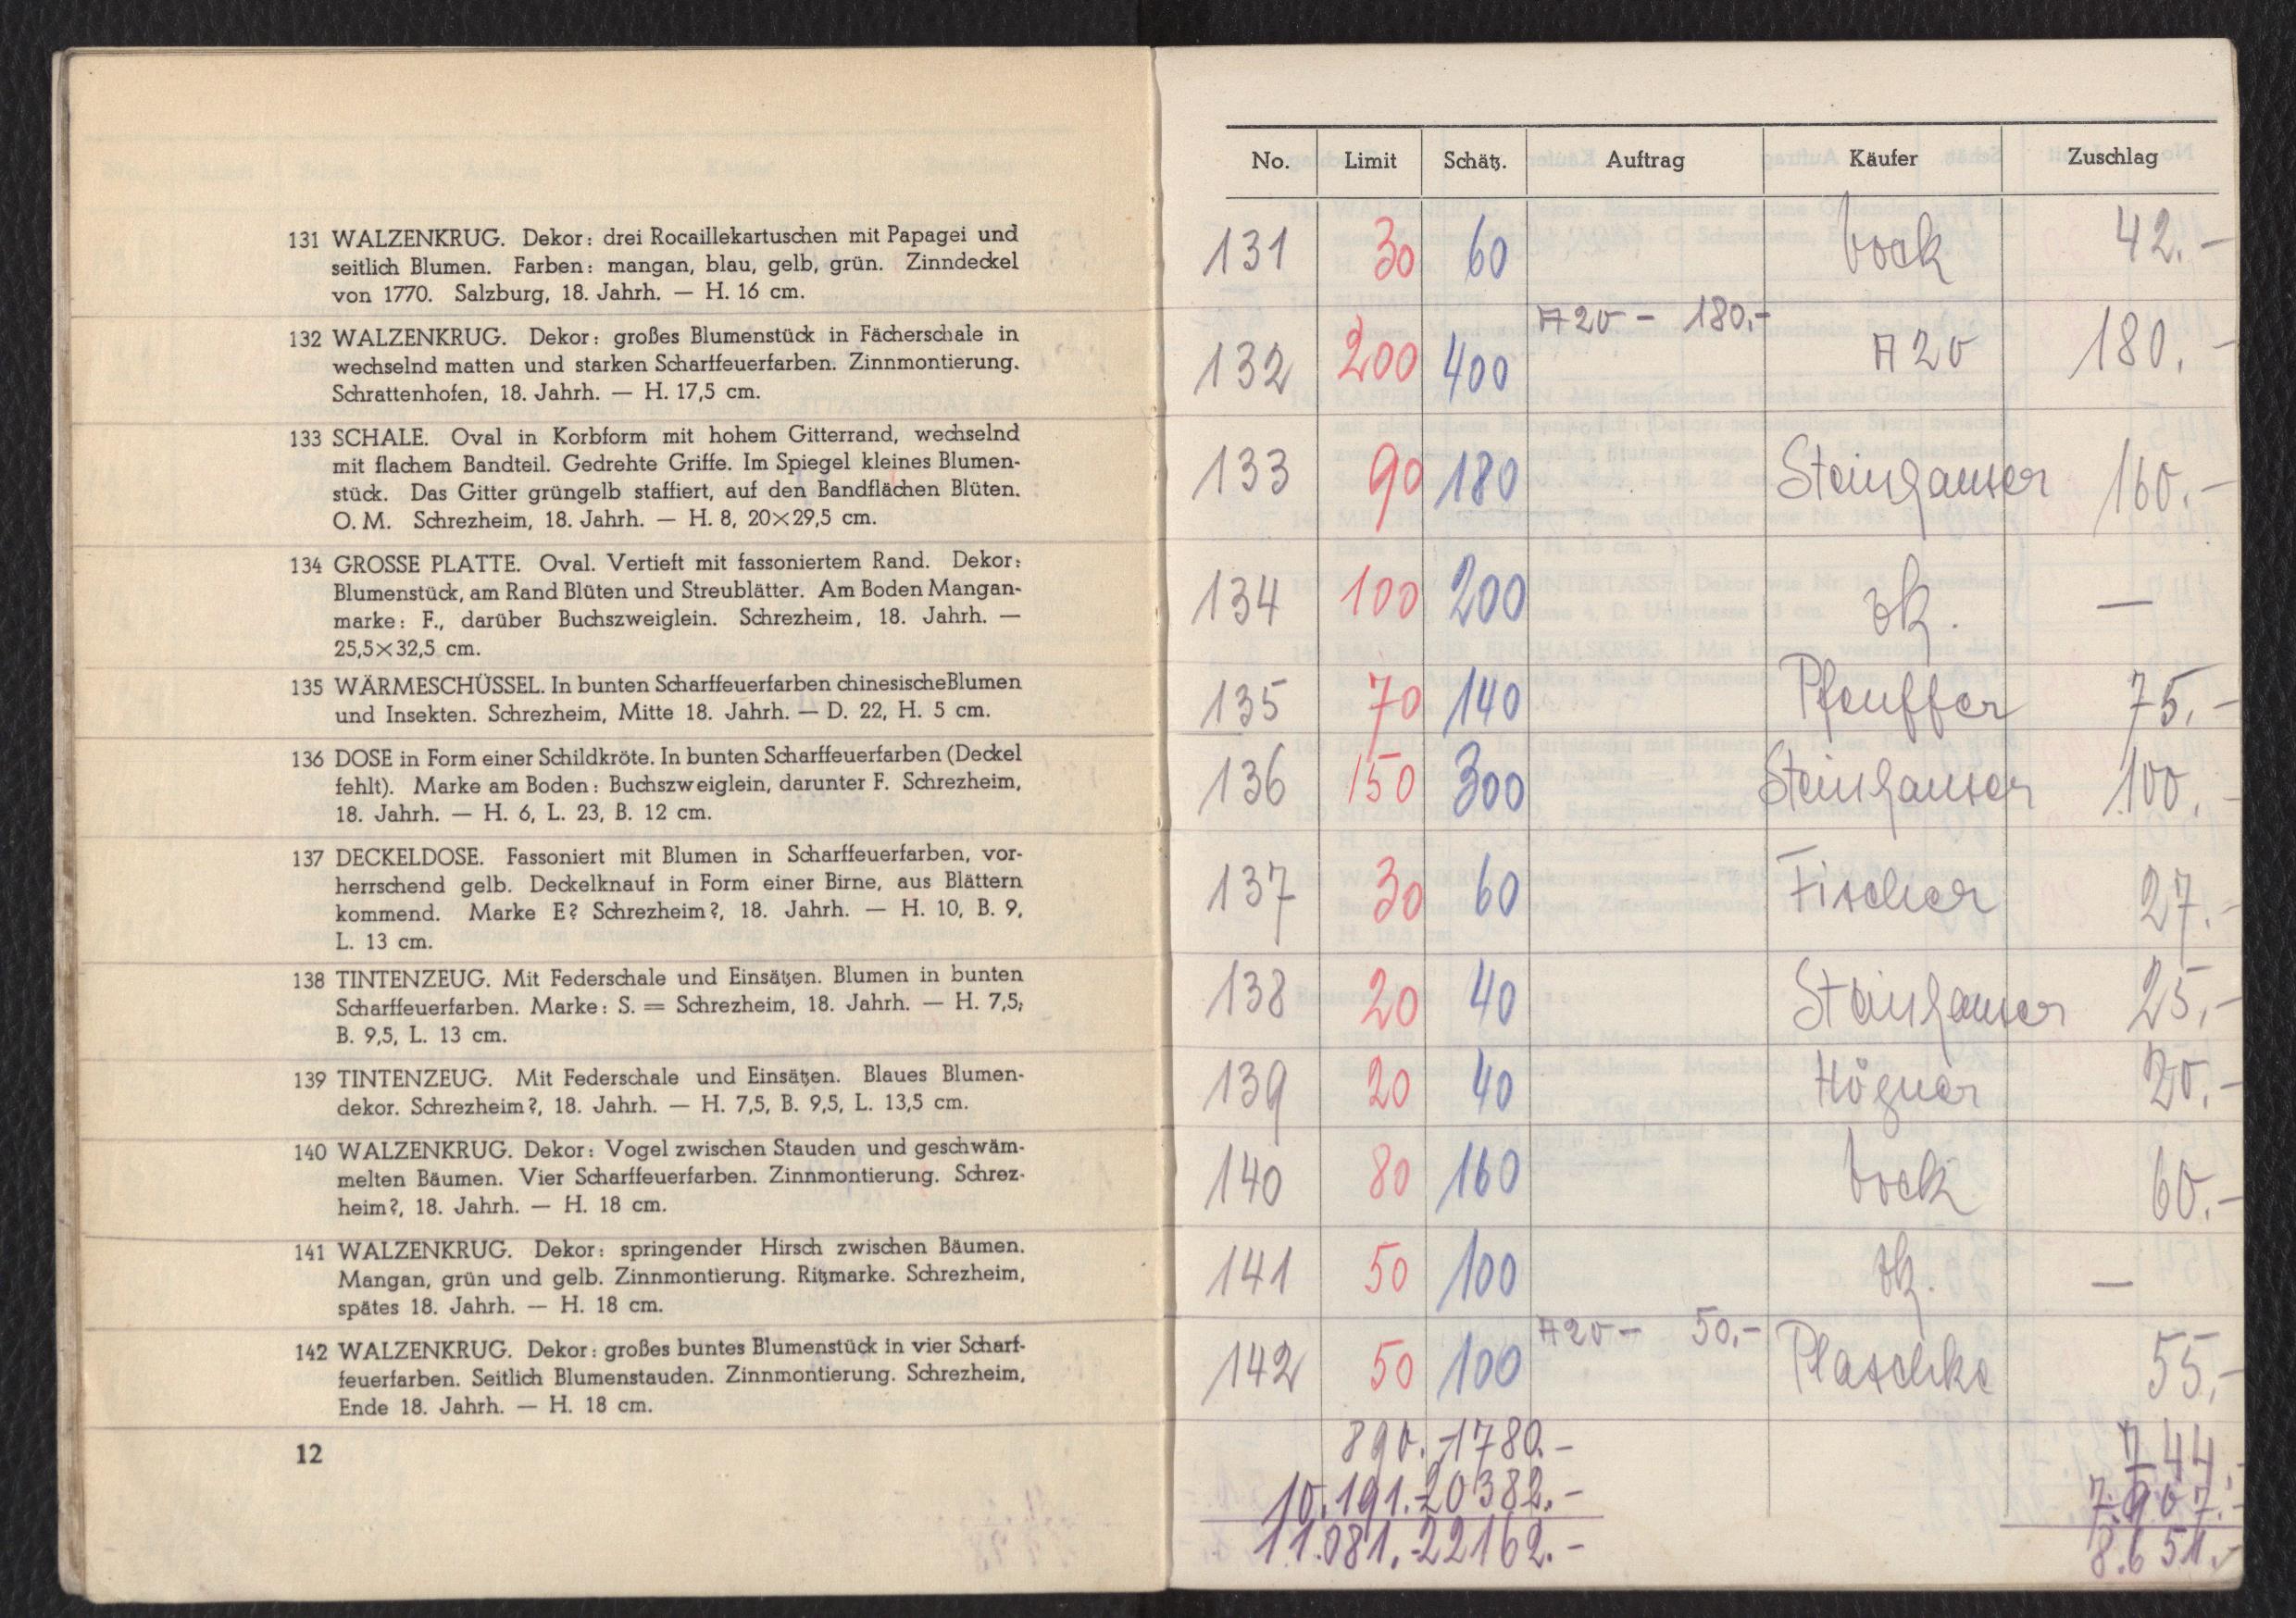 131 WALZENKRUG. Dekor: drei Rocaillekartuschen mit Papagei und
seitlich Blumen. Farben: mangan, blau, gelb, grün. Zinndeckel
von 1770. Salzburg, 18. Jahrh. — H. 16 cm.
132 WALZENKRUG. Dekor: großes Blumenstück in Fächerschale in
wechselnd matten und starken Scharffeuerfarben. Zinnmontierung.
Schrattenhofen, 18. Jahrh. — H. 17,5 cm.
133 SCHALE. Oval in Korbform mit hohem Gitterrand, wechselnd
mit flachem Bandteil. Gedrehte Griffe. Im Spiegel kleines Blumen-
stück. Das Gitter grüngelb staffiert, auf den Bandflächen Blüten.
O. M. Schrezheim, 18. Jahrh. — H. 8, 20×29,5 cm.
134 GROSSE PLATTE. Oval. Vertieft mit fassoniertem Rand. Dekor:
Blumenstück, am Rand Blüten und Streublätter. Am Boden Mangan-
marke: F., darüber Buchszweiglein. Schrezheim, 18. Jahrh. —
25,5×32,5 cm.
135 WÄRMESCHÜSSEL. In bunten Scharffeuerfarben chinesischeBlumen
und Insekten. Schrezheim, Mitte 18. Jahrh. — D. 22, H. 5 cm.
136 DOSE in Form einer Schildkröte. In bunten Scharffeuerfarben (Deckel
fehlt). Marke am Boden: Buchszweiglein, darunter F. Schrezheim,
18. Jahrh. — H. 6, L. 23, B. 12 cm.
137 DECKELDOSE. Fassoniert mit Blumen in Scharffeuerfarben, vor-
herrschend gelb. Deckelknauf in Form einer Birne, aus Blättern
kommend. Marke E? Schrezheim?, 18. Jahrh. — H. 10, B. 9,
L. 13 cm.
138 TINTENZEUG. Mit Federschale und Einsätzen. Blumen in bunten
Scharffeuerfarben. Marke: S. = Schrezheim, 18. Jahrh. — H. 7,5,
B. 9,5, L. 13 cm.
139 TINTENZEUG. Mit Federschale und Einsätzen. Blaues Blumen-
dekor. Schrezheim?, 18. Jahrh. — H. 7,5, B. 9,5, L. 13,5 cm.
140 WALZENKRUG. Dekor: Vogel zwischen Stauden und geschwäm-
melten Bäumen. Vier Scharffeuerfarben. Zinnmontierung. Schrez-
heim?, 18. Jahrh. — H. 18 cm.
141 WALZENKRUG. Dekor: springender Hirsch zwischen Bäumen.
Mangan, grün und gelb. Zinnmontierung. Ritzmarke. Schrezheim,
spätes 18. Jahrh. — H. 18 cm.
142 WALZENKRUG. Dekor: großes buntes Blumenstück in vier Scharf-
feuerfarben. Seitlich Blumenstauden. Zinnmontierung. Schrezheim,
Ende 18. Jahrh. — H. 18 cm.
12
No. Limit Schätz. Auftrag Käufer Zuschlag
131 30 60 bock 42.-
132 200 400 A20 - 180.- A20 180.-
133 90 180 Steinhauser 160.-
134 100 200 zk. —
135 70 140 Pfeuffer 75.-
136 150 300 Steinhauser 100.-
137 30 60 Fischer 27.-
138 20 40 Steinhauser 25.-
139 20 40 Högner 20.-
140 80 160 bock 60.-
141 50 100 zk. —
142 50 100 A20 - 50.- Plaschke 55.-
890.- 1780.- 744.-
10.191.- 20382.- 7.907.-
11.081.- 22162.- 8.651.-